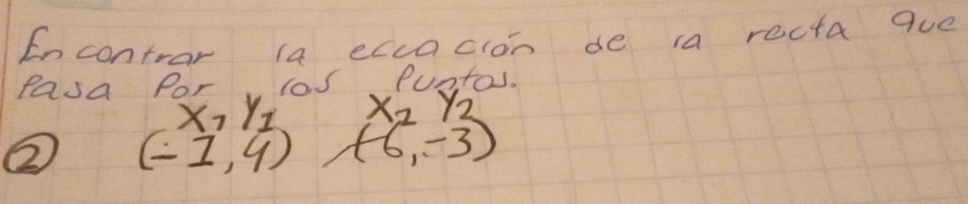 Encontrar la ecuación de la recta que
Pasa Por los Puntos.
X₁ Y₁ X₂ Y₂
② (-1, 4) (-6, -3)